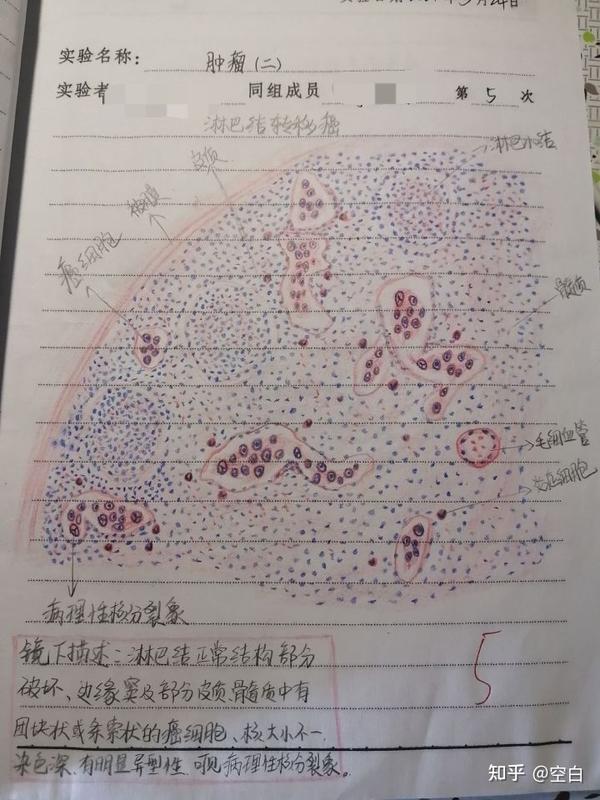 月24日
实验名称: 肿瘤(二)
实验者 同组成员 第 5 次
淋巴结转移癌
皮质
淋巴小结
被膜
癌细胞
髓质
毛细血管
炎症细胞
病理性核分裂象
镜下描述:淋巴结正常结构部分
破坏、边缘窦及部分皮质髓质中有
团块状或条索状的癌细胞、核大小不一,
染色深,有明显异型性,可见病理性核分裂象。
5
知乎 @空白